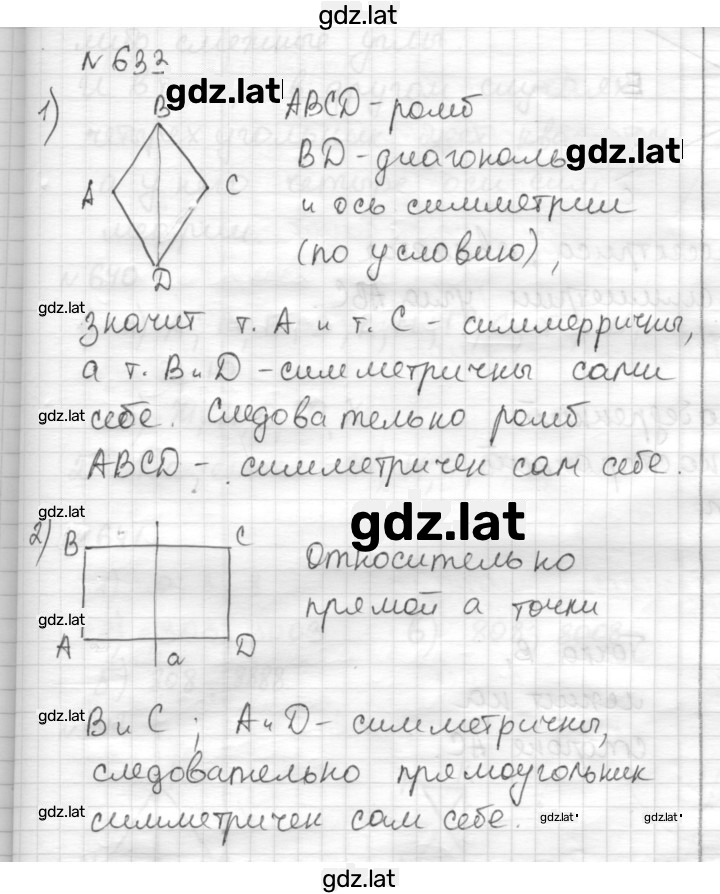 gdz.lat
N 633
gdz.lat
1)
B
A
C
D
ABCD - ромб
BD - диагональ
gdz.lat
и ось симметрии
(по условию),
gdz.lat
значит т. A и т. C - симмерричны,
а т. B и D - симметричны сами
gdz.lat
себе. Следовательно ромб
ABCD - симметричен сам себе.
gdz.lat
gdz.lat
2)
B
C
A
D
a
gdz.lat
Относительно
прямой a точки
gdz.lat
B и C ; A и D - симметричны,
следовательно прямоугольник
gdz.lat
симметричен сам себе.
gdz.lat
gdz.lat
gdz.lat